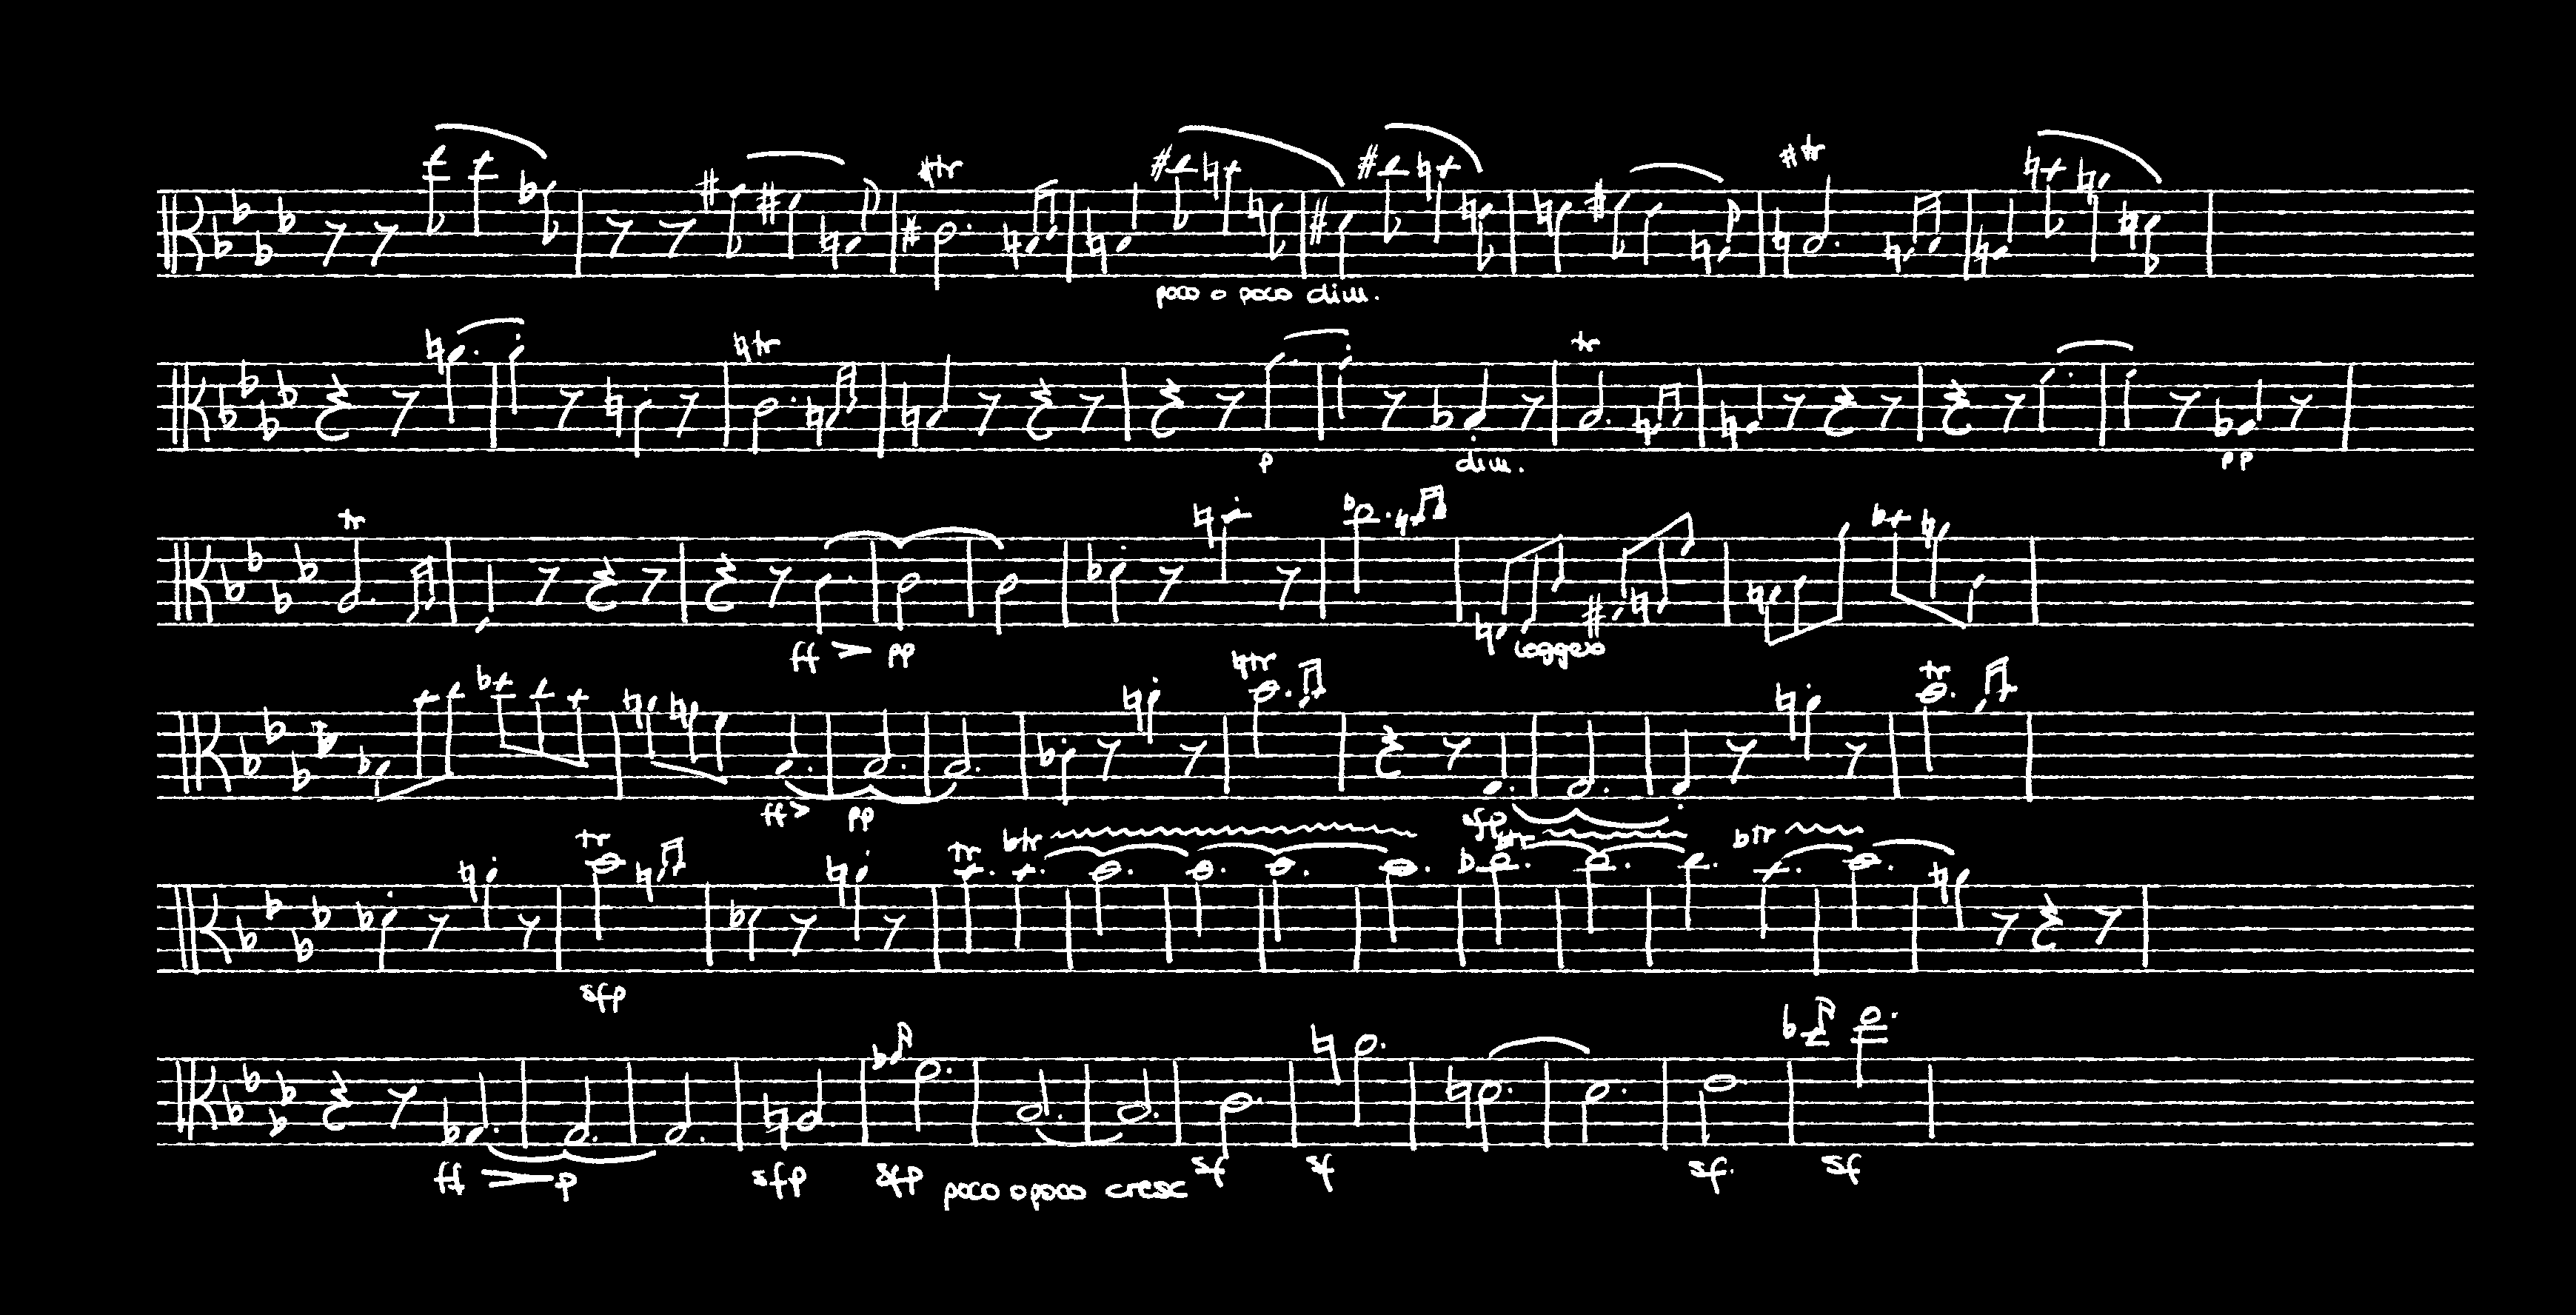 tr
tr
poco o poco dim.
tr tr
p dim. pp
tr
ff pp leggero
tr tr
ff pp sfp
tr tr btr btr btr
sfp
ff p sfp sfp poco o poco cresc sf sf sf. sf